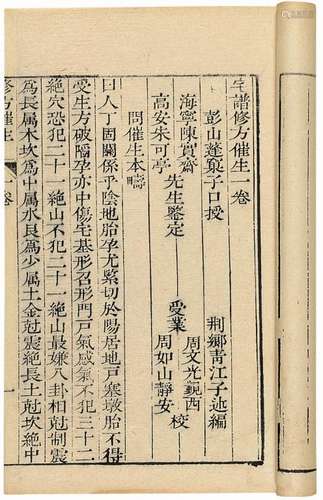 宅譜修方催生一卷
彭山蓬窠子口授
荆鄉靑江子述編
海寧陳實齋
高安朱可亭
先生鑒定
受業
周文光觀西
周如山靜安
校
問催生本疇
曰人丁固關係乎陰地胎孕尤緊切於陽居地戸塞墩胎不得
受生方破陷孕亦中傷宅基形召形門戸氣感氣不犯三十二
絶穴恐犯二十一絶山不犯二十一絶山最嫌八卦相尅制震
爲長屬木坎爲中屬水艮爲少屬土金尅震絶長土尅坎絶中
修方催生
卷
一